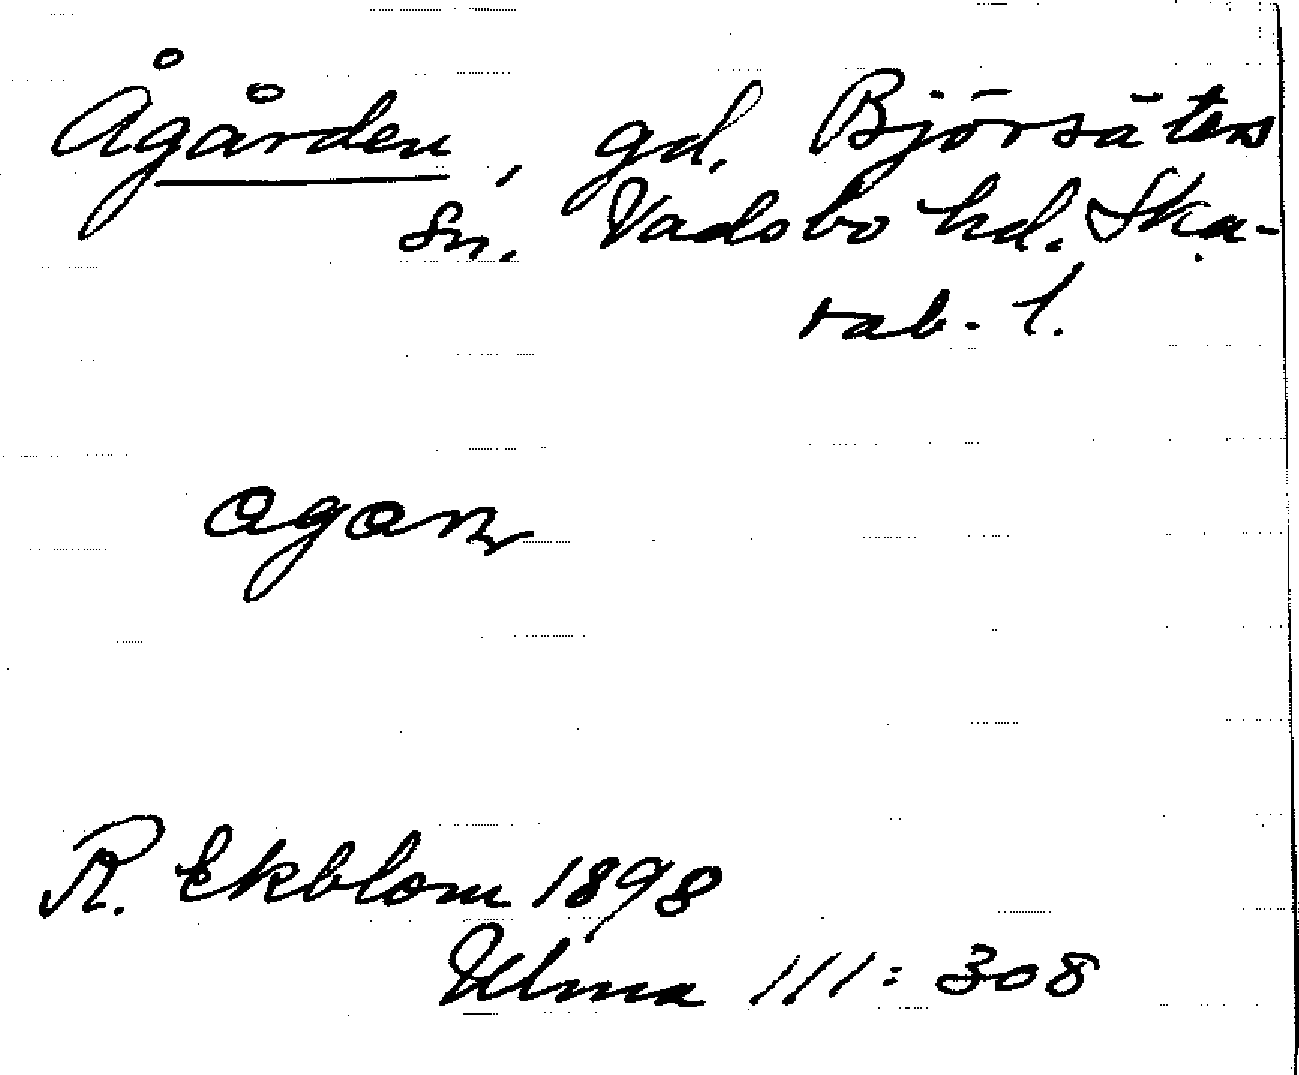 Ågården, gd. Björsäters
sn. Vadsbo hd. Ska-
rab. l.
R. Ekblom 1898
Ulma 111:308